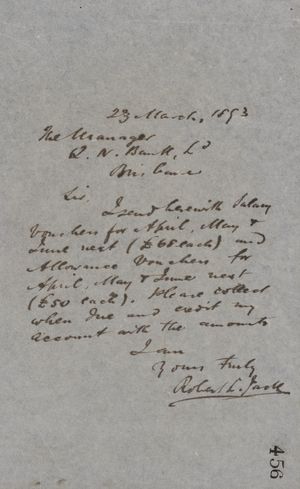 23 March, 1893
The Manager
Q. N. Bank, Ld
Brisbane
Sir,
I send herewith Salary
Vouchers for April, May &
June next (£68 each) and
Allowance Vouchers for
April, May & June next
(£50 each). Please collect
when due and credit my
account with the amounts
I am
Yours truly
Robert L. Jack
456